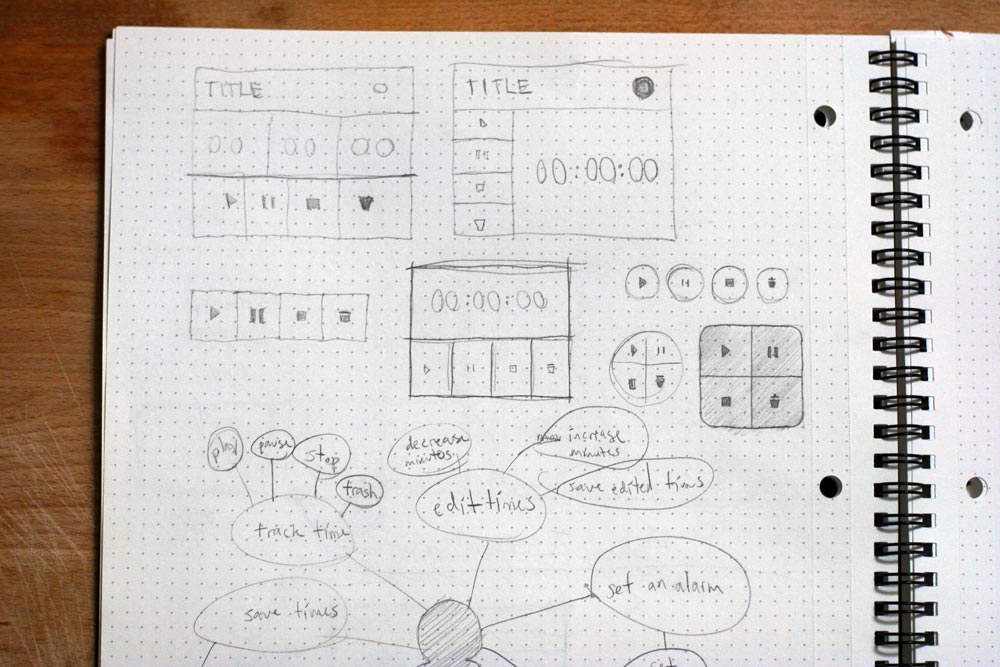 TITLE
00 00 00
TITLE
00:00:00
00:00:00
play
pause
stop
trash
track time
decrease
minutes
increase
minutes
save edited times
edit times
set an alarm
save times